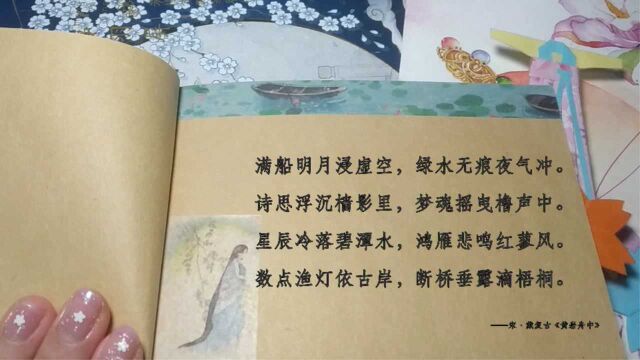 满船明月浸虚空，绿水无痕夜气冲。
诗思浮沉樯影里，梦魂摇曳橹声中。
星辰冷落碧潭水，鸿雁悲鸣红蓼风。
数点渔灯依古岸，断桥垂露滴梧桐。
——宋·戴复古《黄岩舟中》